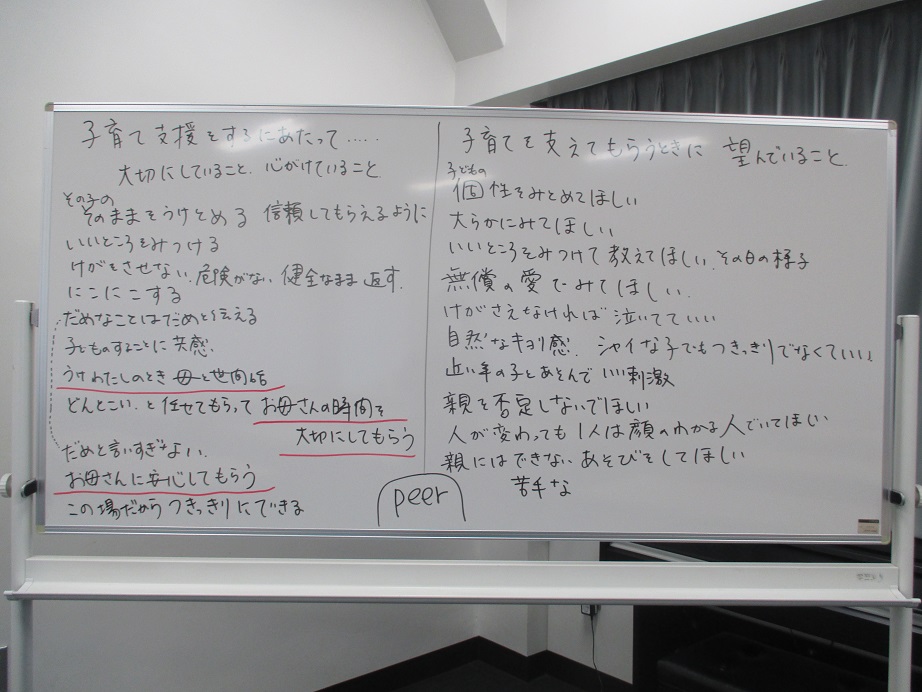 子育て支援をするにあたって……
大切にしていること、心がけていること
その子の
そのままをうけとめる 信頼してもらえるように
いいところをみつける
けがをさせない、危険がない、健全なまま返す.
にこにこする
だめなことはだめと伝える
子どものすることに共感.
うけわたしのとき 母と世間話
どんとこい、と任せてもらって お母さんの時間を
大切にしてもらう
だめと言いすぎない.
お母さんに安心してもらう
この場だから つきっきりにできる
peer
子育てを支えてもらうときに 望んでいること.
子どもの
個性をみとめてほしい
大らかにみてほしい
いいところをみつけて 教えてほしい、その日の様子
無償の愛でみてほしい.
けがさえなければ 泣いてていい
自然なキョリ感. シャイな子でもつきっきりでなくていい
近い年の子とあそんで いい刺激
親を否定しないでほしい
人が変わっても 1人は顔のわかる人でいてほしい
親にはできない あそびをしてほしい
苦手な